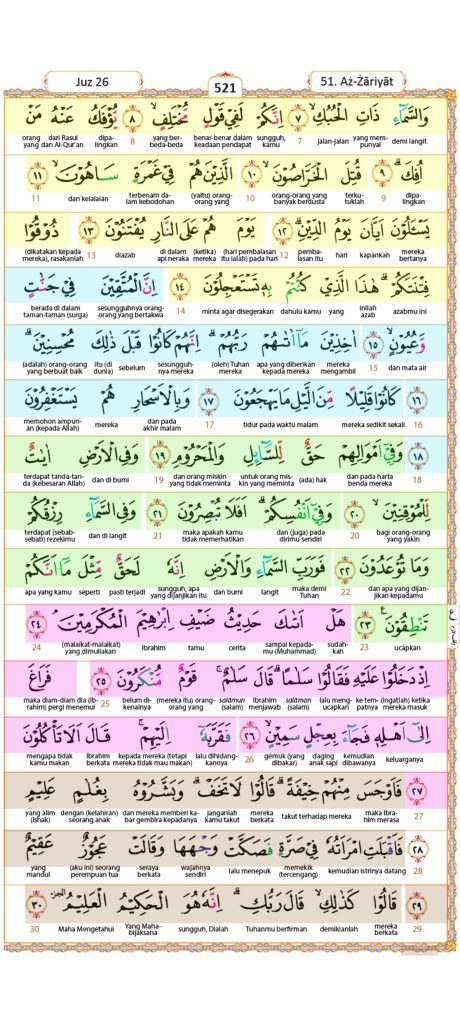 Juz 26
521
51. Aż-Żāriyāt
وَالسَّمَاۤءِ ذَاتِ الْحُبُكِۙ ٧ اِنَّكُمْ لَفِيْ قَوْلٍ مُّخْتَلِفٍۙ ٨ يُّؤْفَكُ عَنْهُ مَنْ
demi langit yang mem-punyai jalan-jalan 7 sungguh, kamu benar-benar dalam keadaan pendapat yang ber-beda-beda 8 dipa-lingkan dari Rasul dan Al-Qur'an orang yang
اُفِكَۗ ٩ قُتِلَ الْخَرَّاصُوْنَۙ ١٠ الَّذِيْنَ هُمْ فِيْ غَمْرَةٍ سَاهُوْنَۙ ١١
dipa-lingkan 9 terku-tuklah orang-orang yang banyak berdusta 10 (yaitu) orang-orang yang terbenam da-lam kebodohan dan kelalaian 11
يَسْـَٔلُوْنَ اَيَّانَ يَوْمُ الدِّيْنِۗ ١٢ يَوْمَ هُمْ عَلَى النَّارِ يُفْتَنُوْنَ ١٣ ذُوْقُوْا
mereka bertanya kapankah hari pemba-lasan itu 12 (hari pembalasan itu ialah) pada hari (ketika) mereka di dalam api neraka diazab 13 (dikatakan kepada mereka), rasakanlah
فِتْنَتَكُمْۗ هٰذَا الَّذِيْ كُنْتُمْ بِهٖ تَسْتَعْجِلُوْنَ ١٤ اِنَّ الْمُتَّقِيْنَ فِيْ جَنّٰتٍ
azabmu ini inilah azab yang dahulu kamu minta agar disegerakan 14 sesungguhnya orang-orang yang bertakwa berada di dalam taman-taman (surga)
وَّعُيُوْنٍۙ ١٥ اٰخِذِيْنَ مَآ اٰتٰىهُمْ رَبُّهُمْۗ اِنَّهُمْ كَانُوْا قَبْلَ ذٰلِكَ مُحْسِنِيْنَۗ
dan mata air 15 mereka mengambil apa yang diberikan kepada mereka (oleh) Tuhan mereka sesungguh-nya mereka sebelum itu (di dunia) (adalah) orang-orang yang berbuat baik
١٦ كَانُوْا قَلِيْلًا مِّنَ الَّيْلِ مَا يَهْجَعُوْنَ ١٧ وَبِالْاَسْحَارِ هُمْ يَسْتَغْفِرُوْنَ
16 mereka sedikit sekali tidur pada waktu malam 17 dan pada akhir malam mereka memohon ampun-an (kepada Allah)
١٨ وَفِيْٓ اَمْوَالِهِمْ حَقٌّ لِّلسَّاۤىِٕلِ وَالْمَحْرُوْمِ ١٩ وَفِى الْاَرْضِ اٰيٰتٌ
18 dan pada harta benda mereka (ada) hak untuk orang mis-kin yang meminta dan orang miskin yang tidak meminta 19 dan di bumi terdapat tanda-tan-da (kebesaran Allah)
لِّلْمُوْقِنِيْنَۙ ٢٠ وَفِيْٓ اَنْفُسِكُمْۗ اَفَلَا تُبْصِرُوْنَ ٢١ وَفِى السَّمَاۤءِ رِزْقُكُمْ
bagi orang-orang yang yakin 20 dan (juga) pada dirimu sendiri maka apakah kamu tidak memerhatikan 21 dan di langit terdapat (sebab-sebab) rezekimu
وَمَا تُوْعَدُوْنَ ٢٢ فَوَرَبِّ السَّمَاۤءِ وَالْاَرْضِ اِنَّهٗ لَحَقٌّ مِّثْلَ مَآ اَنَّكُمْ
dan apa yang dijan-jikan kepadamu 22 maka demi Tuhan langit dan bumi sungguh, apa yang dijanjikan itu pasti terjadi seperti apa yang kamu
تَنْطِقُوْنَ ٢٣ هَلْ اَتٰىكَ حَدِيْثُ ضَيْفِ اِبْرٰهِيْمَ الْمُكْرَمِيْنَۘ ٢٤
ucapkan 23 sudah-kah sampai kepada-kamu (Muhammad) cerita tamu Ibrahim (malaikat-malaikat) yang dimuliakan 24
اِذْ دَخَلُوْا عَلَيْهِ فَقَالُوْا سَلٰمًاۗ قَالَ سَلٰمٌۚ قَوْمٌ مُّنْكَرُوْنَ ٢٥ فَرَاغَ
(ingatlah) ketika mereka masuk ke tem-patnya lalu meng-ucapkan salāman (salam) Ibrahim menjawab salāmun (salam) (mereka itu) orang-orang yang belum di-kenalnya 25 maka diam-diam dia (Ib-rahim) pergi menemui
اِلٰٓى اَهْلِهٖ فَجَاۤءَ بِعِجْلٍ سَمِيْنٍۙ ٢٦ فَقَرَّبَهٗٓ اِلَيْهِمْۚ قَالَ اَلَا تَأْكُلُوْنَ
keluarganya kemudian dibawanya daging anak sapi gemuk (yang dibakar) 26 lalu dihidang-kannya kepada mereka (tetapi mereka tidak mau makan) Ibrahim berkata mengapa tidak kamu makan
٢٧ فَاَوْجَسَ مِنْهُمْ خِيْفَةًۗ قَالُوْا لَا تَخَفْۗ وَبَشَّرُوْهُ بِغُلٰمٍ عَلِيْمٍ
27 maka Ibra-him merasa takut terhadap mereka mereka berkata janganlah kamu takut dan mereka memberi ka-bar gembira kepadanya dengan (kelahiran) seorang anak yang alim (Ishak)
٢٨ فَاَقْبَلَتِ امْرَاَتُهٗ فِيْ صَرَّةٍ فَصَكَّتْ وَجْهَهَا وَقَالَتْ عَجُوْزٌ عَقِيْمٌ
28 kemudian istrinya datang memekik (tercengang) lalu menepuk wajahnya sendiri seraya berkata (aku ini) seorang perempuan tua yang mandul
٢٩ قَالُوْا كَذٰلِكِۙ قَالَ رَبُّكِۗ اِنَّهٗ هُوَ الْحَكِيْمُ الْعَلِيْمُ ٣٠
29 mereka berkata demikianlah Tuhanmu berfirman sungguh, Dialah Yang Maha-bijaksana Maha Mengetahui 30